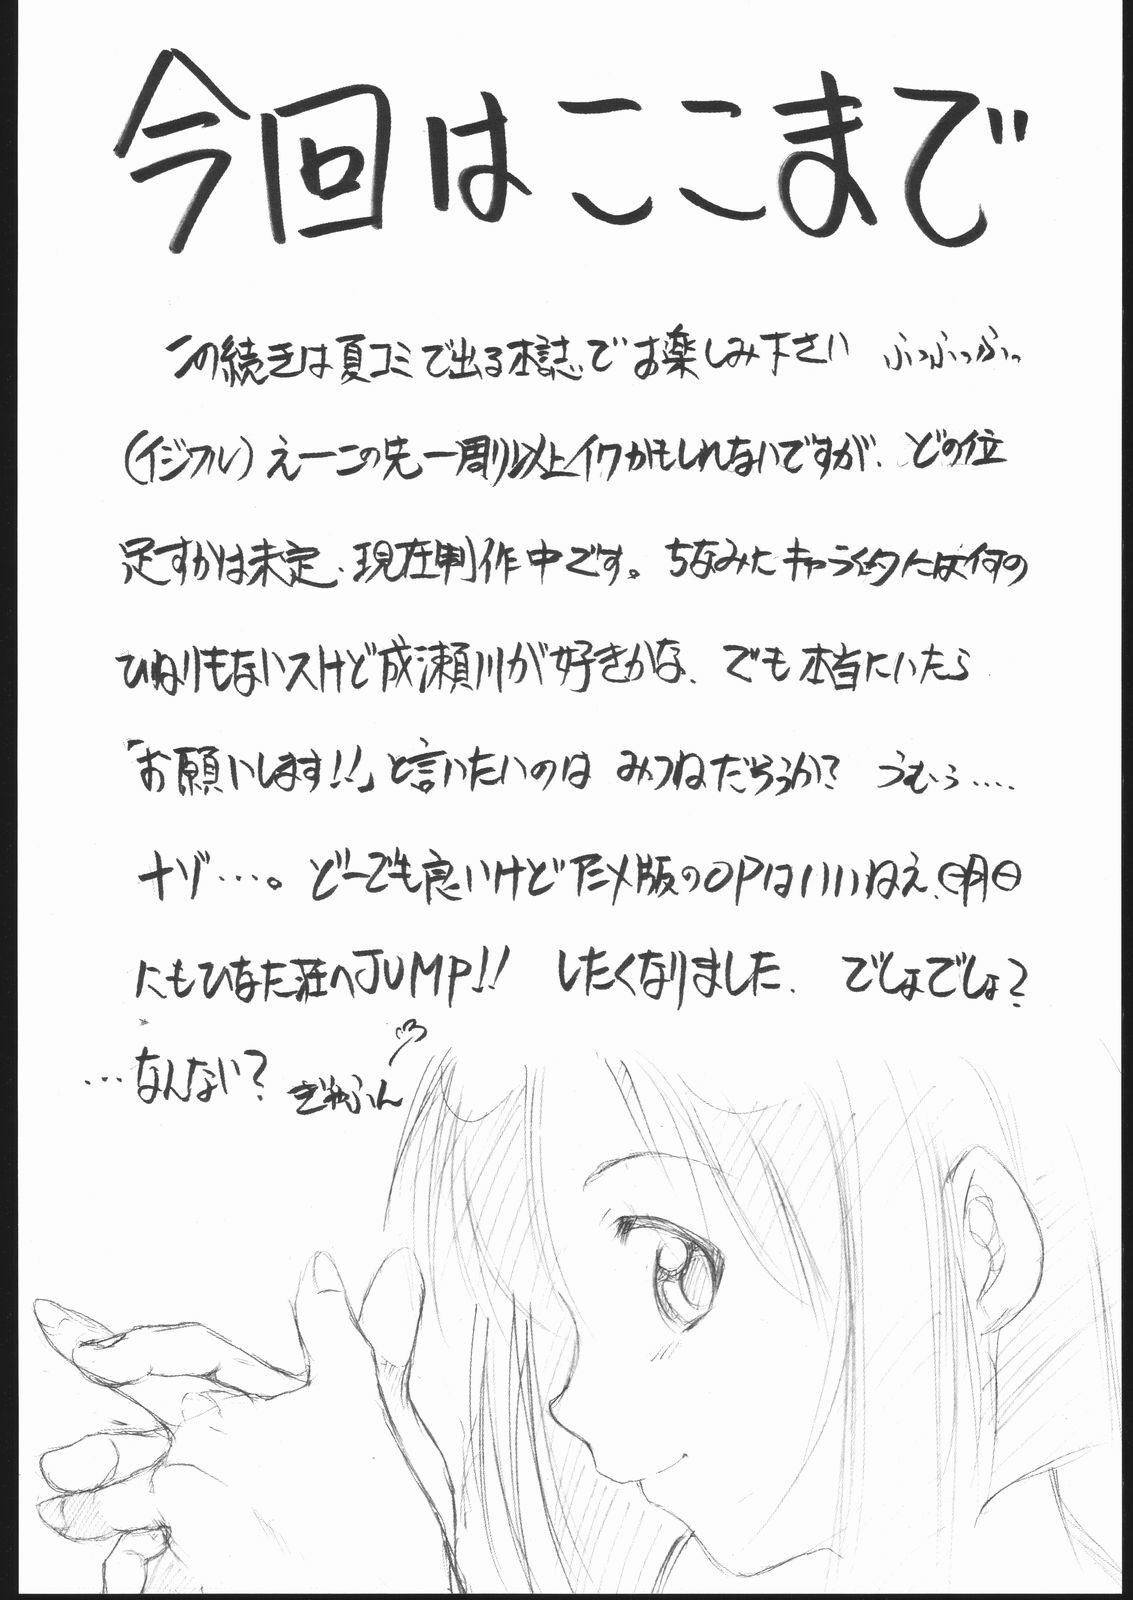 今回はここまで
この続きは夏コミで出る本誌でお楽しみ下さい ふっふっふっ
(イジワル)えーこの先一周り以上イクかもしれないですが、どの位
足すかは未定、現在制作中です。ちなみにキャラ的には何の
ひねりもないスけど成瀬川が好きかな、でも本当にいたら
「お願いします!!」と言いたいのは みつねだろうか? うむぅ‥‥
ナゾ‥‥。どーでも良いけどアニメ版のOPはいいねえ、明日
にもひなた荘へJUMP!! したくなりました、でしょでしょ?
…なんない? ぎゃふん